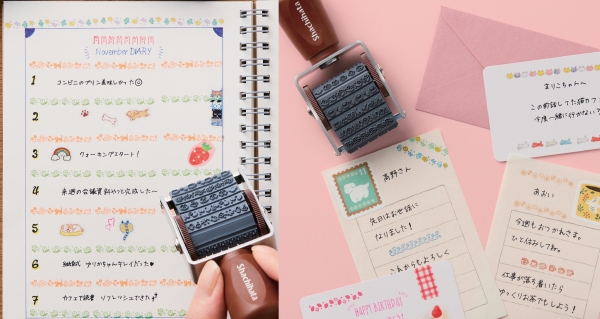 November DIARY
1 コンビニのプリン美味しかった☺
2
3 ウォーキングスタート！
4 来週の会議資料やっと完成した〜
5
6 結婚式 マリカちゃんキレイだった♥
7 カフェで読書 リフレッシュできた
Shachihata
Shachihata
まりこちゃんへ
この前話してた猫カフェ
今度一緒に行かない？
高野さん
先日はお世話に
なりました！
これからもよろしく
あおい
今週もおつかれさま。
ひと休みしてね。
仕事が落ち着いたら
ゆっくりお茶でもしよう！
HAPPY BIRTHDAY